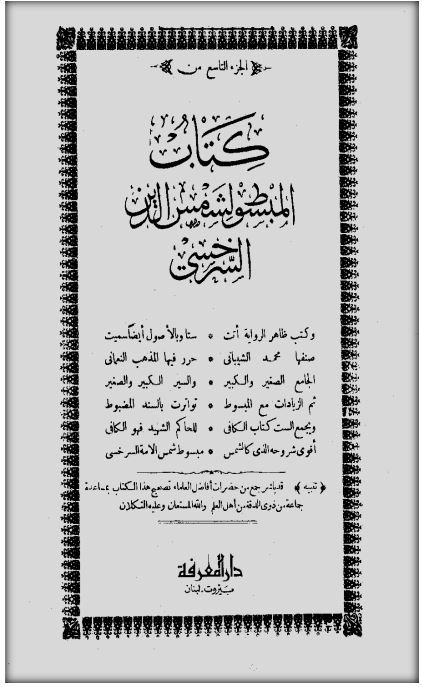 ﴿ الجزء التاسع من ﴾
كتاب
المبسوط لشمس الدين
السرخسي
وكتب ظاهر الرواية أتت * ستا وبالأصول أيضا سميت
صنفها محمد الشيباني * حرر فيها المذهب النعماني
الجامع الصغير والكبير * والسير الكبير والصغير
ثم الزيادات مع المبسوط * تواترت بالسند المضبوط
ويجمع الست كتاب الكافي * للحاكم الشهيد فهو الكافي
أقوى شروحه الذي كالشمس * مبسوط شمس الأمة السرخسي
﴿ تنبيه ﴾ قد باشر جمع من حضرات أفاضل العلماء تصحيح هذا الكتاب بمساعدة
جماعة من ذوي الدقة من أهل العلم والله المستعان وعليه التكلان
دار المعرفة
بيروت. لبنان